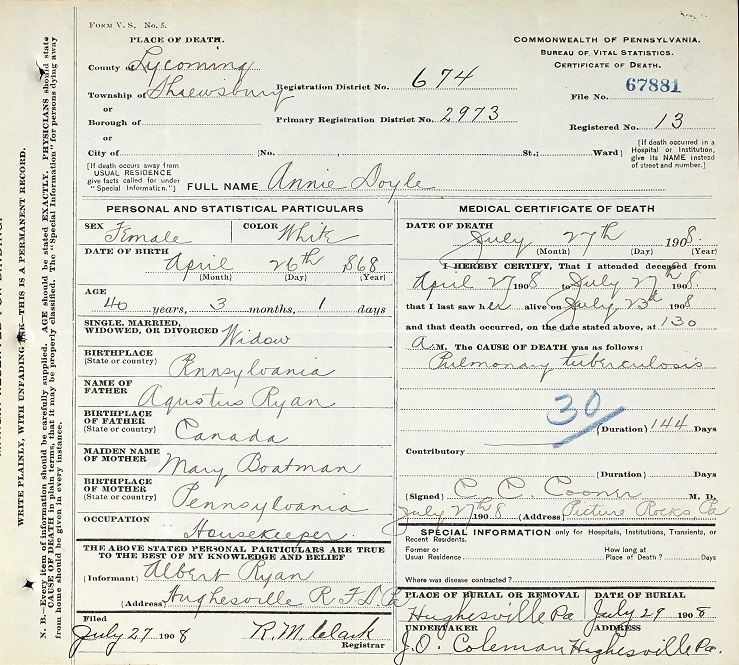 FORM V. S. No. 5.
PLACE OF DEATH.
County of Lycoming
Township of Shrewsbury
or
Borough of
or
City of (No. , St.; Ward)
Registration District No. 674
Primary Registration District No. 2973
COMMONWEALTH OF PENNSYLVANIA.
BUREAU OF VITAL STATISTICS.
CERTIFICATE OF DEATH.
File No. 67881
Registered No. 13
[If death occurred in a Hospital or Institution, give its NAME instead of street and number.]
[If death occurs away from USUAL RESIDENCE give facts called for under "Special Information."]
FULL NAME Annie Doyle
PERSONAL AND STATISTICAL PARTICULARS
SEX Female
COLOR White
DATE OF BIRTH
April 26th 1868
(Month) (Day) (Year)
AGE
40 years, 3 months, 1 days
SINGLE, MARRIED,
WIDOWED, OR DIVORCED Widow
BIRTHPLACE
(State or country) Pnnsylvania
NAME OF
FATHER Agustus Ryan
BIRTHPLACE
OF FATHER
(State or country) Canada
MAIDEN NAME
OF MOTHER Mary Boatman
BIRTHPLACE
OF MOTHER
(State or country) Pennsylvania
OCCUPATION
Housekeeper.
THE ABOVE STATED PERSONAL PARTICULARS ARE TRUE
TO THE BEST OF MY KNOWLEDGE AND BELIEF
(Informant) Albert Ryan
(Address) Hughesville R F D Pa
Filed
July 27 1908 R. M. Clark
Registrar
MEDICAL CERTIFICATE OF DEATH
DATE OF DEATH
July 27th 1908.
(Month) (Day) (Year)
I HEREBY CERTIFY, That I attended deceased from
April 27 1908 to July 27th 1908.
that I last saw her alive on July 23d 1908
and that death occurred, on the date stated above, at 130
a.M. The CAUSE OF DEATH was as follows:
Pulmonary tuberculosis
30
(Duration) 144 Days
Contributory
(Duration) Days
(Signed) C. C. Cooner M. D.
July 27th 1908 (Address) Picture Rocks, Pa
SPECIAL INFORMATION only for Hospitals, Institutions, Transients, or
Recent Residents.
Former or
Usual Residence
How long at
Place of Death? Days
Where was disease contracted?
PLACE OF BURIAL OR REMOVAL
Hughesville Pa
DATE OF BURIAL
July 29 1908
UNDERTAKER
J. O. Coleman
ADDRESS
Hughesville Pa.
WRITE PLAINLY, WITH UNFADING INK—THIS IS A PERMANENT RECORD.
N. B.—Every item of information should be carefully supplied. AGE should be stated EXACTLY. PHYSICIANS should state
CAUSE OF DEATH in plain terms, that it may be properly classified. The "Special Information" for persons dying away
from home should be given in every instance.